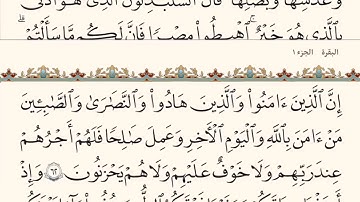 وَعَدَسِهَا وَبَصَلِهَا قَالَ أَتَسْتَبْدِلُونَ ٱلَّذِى هُوَ أَدْنَىٰ
بِٱلَّذِى هُوَ خَيْرٌ ٱهْبِطُوا۟ مِصْرًا فَإِنَّ لَكُم مَّا سَأَلْتُمْ ۗ
البقرة الجزء ١
إِنَّ ٱلَّذِينَ ءَامَنُوا۟ وَٱلَّذِينَ هَادُوا۟ وَٱلنَّصَـٰرَىٰ وَٱلصَّـٰبِـِٔينَ
مَنْ ءَامَنَ بِٱللَّهِ وَٱلْيَوْمِ ٱلْـَٔاخِرِ وَعَمِلَ صَـٰلِحًا فَلَهُمْ أَجْرُهُمْ
عِندَ رَبِّهِمْ وَلَا خَوْفٌ عَلَيْهِمْ وَلَا هُمْ يَحْزَنُونَ ٦٢ وَإِذْ